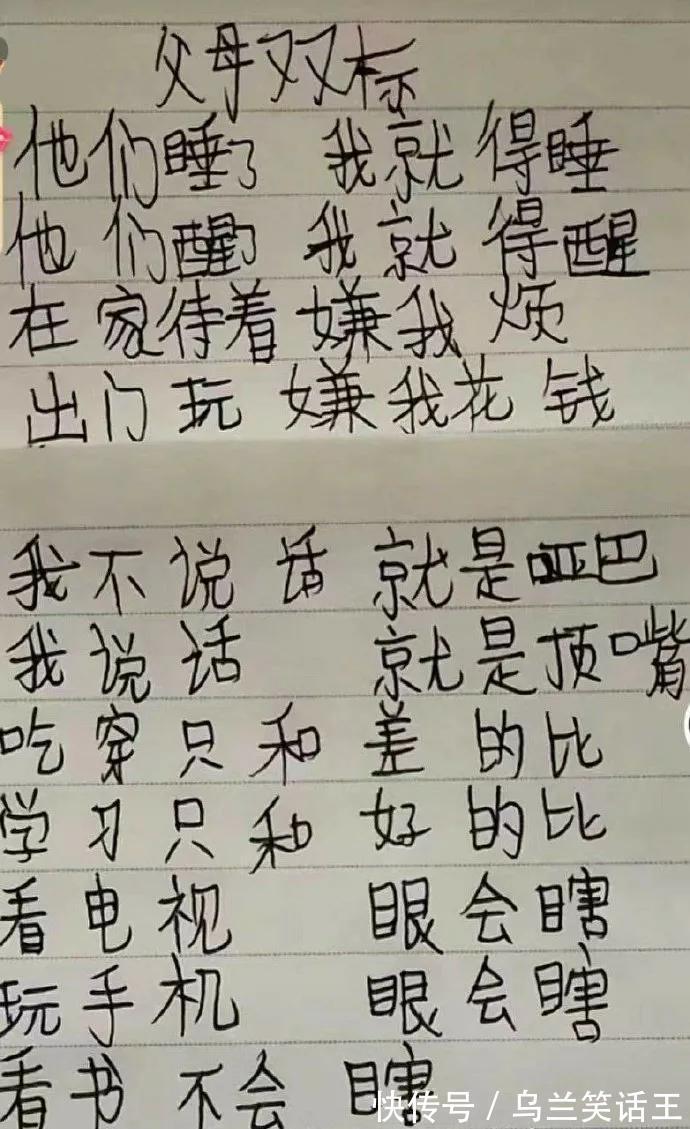 父母双标
他们睡了 我就得睡
他们醒了 我就得醒
在家待着 嫌我烦
出门玩 嫌我花钱
我不说话 就是哑巴
我说话 就是顶嘴
吃穿只和差的比
学习只和好的比
看电视 眼会瞎
玩手机 眼会瞎
看书不会瞎
快传号 / 乌兰笑话王